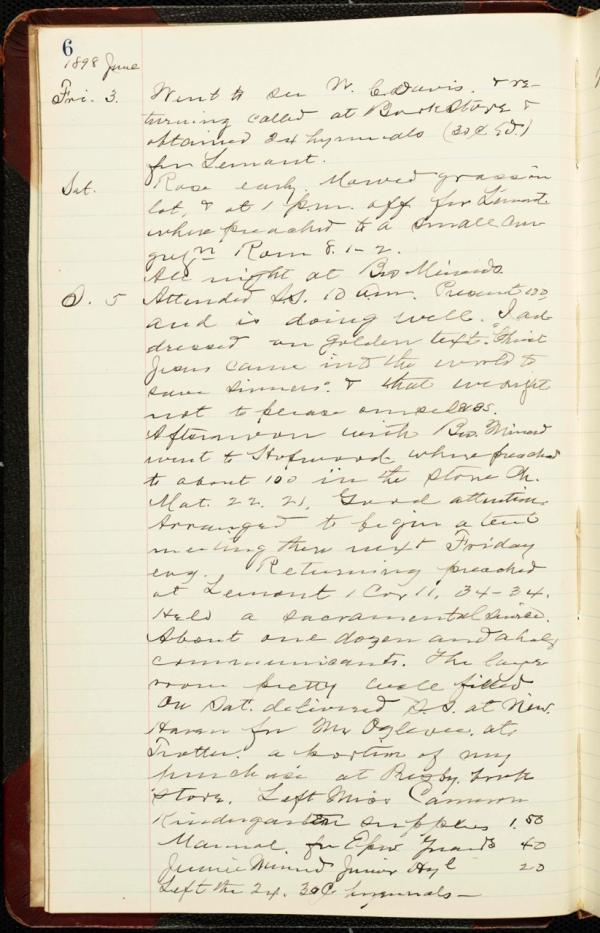 6
1898 June
Fri. 3. Went to see W. C. Davis. & re-
turning called at Book Store &
obtained 24 hymnals (30¢ Ed.)
for Lemont.
Sat. Rose early. Mowed grass in
lot, & at 1 p.m. off for Lemont
where preached to a small con-
greg'n Rom 8. 1-2.
All night at Bro Minards
S. 5 Attended S.S. 10 am. Present 130
and is doing well. I ad-
dressed on golden text. "Christ
Jesus came into the world to
save sinners". & that we ought
not to please ourselves.
Afternoon with Bro. Minard
went to Hopwood where preached
to about 100 in the stone Ch.
Mat. 22. 21. Good attention.
Arranged to begin a tent
meeting there next Friday
evg. Returning preached
at Lemont 1 Cor 11. 34-34.
Held a sacramental service.
About one dozen and a half
communicants. The large
room pretty well filled
On Sat. delivered S.S. at New.
Haven for Mr Oglevee. at
Trotter. a portion of my
purchase at Rigby. book
store. Left Miss Cameron
Kindergarten supplies 1.50
Manual. for Epw Guards 40
Jennie Minard Junior Hyl 20
Left the 24. 30¢ hymnals—